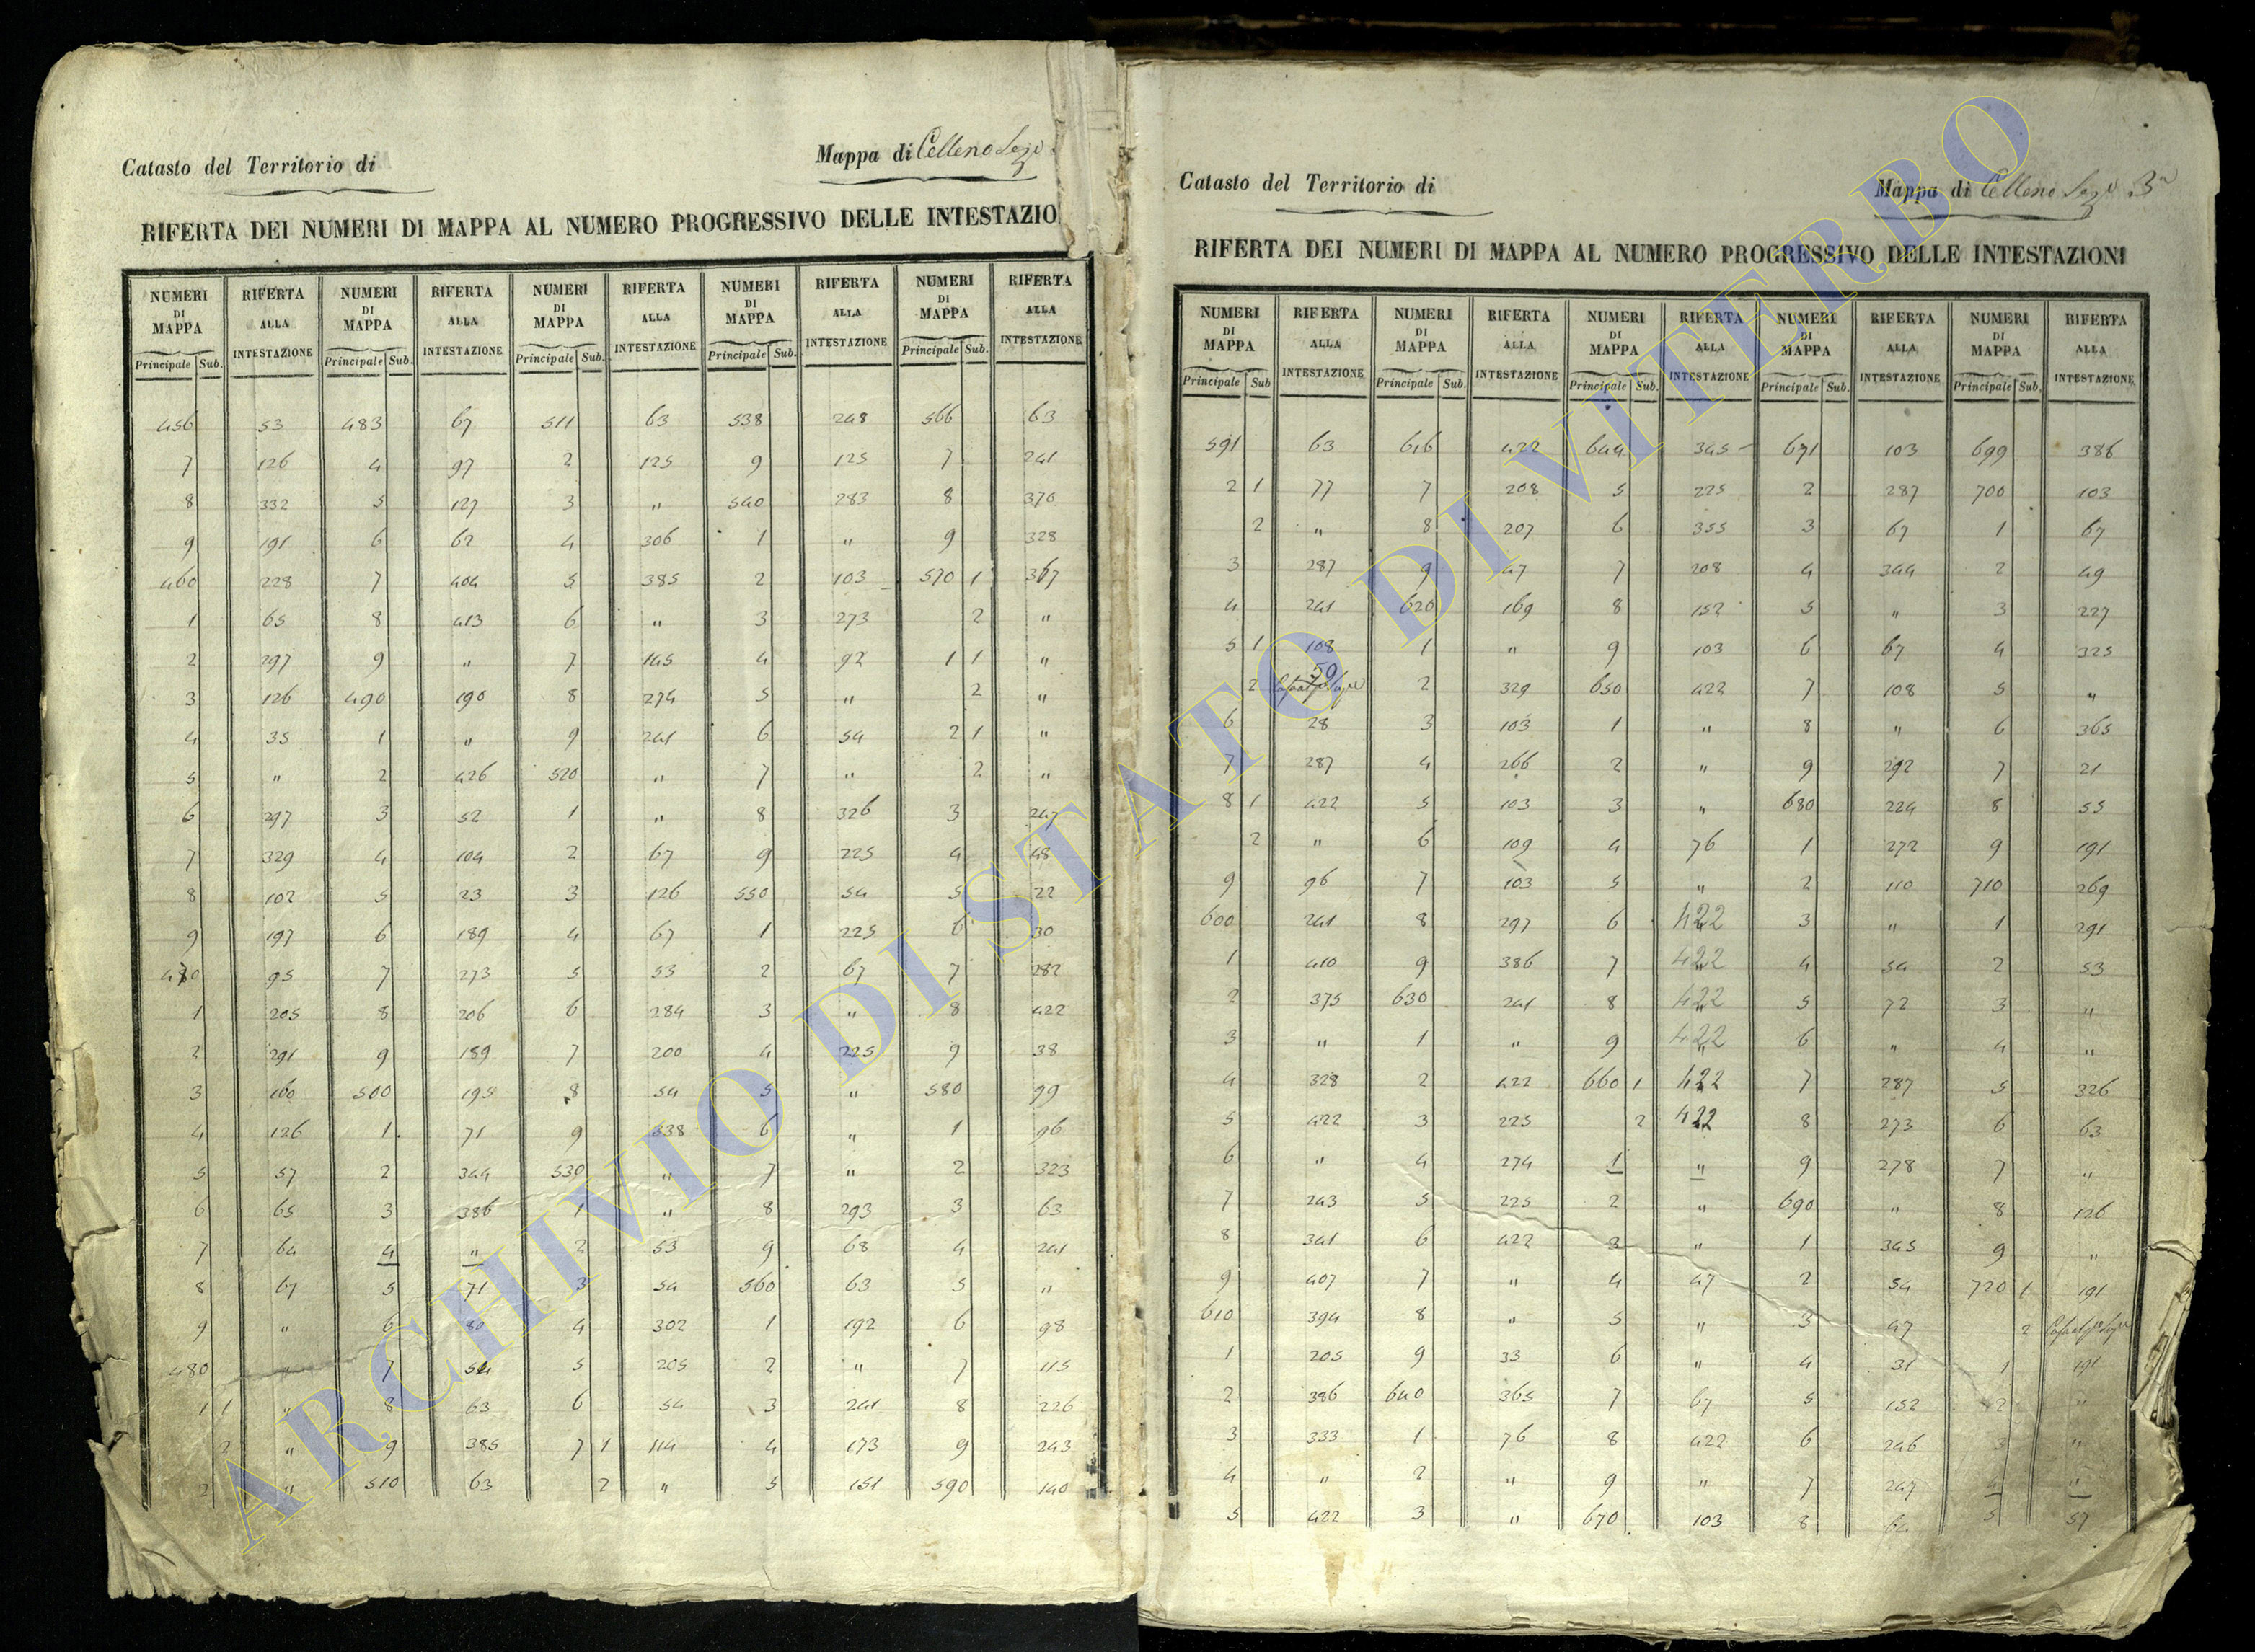 Catasto del Territorio di
Mappa di Celleno Sez.e
RIFERTA DEI NUMERI DI MAPPA AL NUMERO PROGRESSIVO DELLE INTESTAZIO
NUMERI DI MAPPA RIFERTA ALLA INTESTAZIONE NUMERI DI MAPPA RIFERTA ALLA INTESTAZIONE NUMERI DI MAPPA RIFERTA ALLA INTESTAZIONE NUMERI DI MAPPA RIFERTA ALLA INTESTAZIONE NUMERI DI MAPPA RIFERTA ALLA INTESTAZIONE
Principale Sub. Principale Sub. Principale Sub. Principale Sub. Principale Sub.
456 53 483 67 511 63 538 248 566 63
7 126 4 97 2 125 9 125 7 241
8 332 5 127 3 " 540 283 8 370
9 191 6 62 4 306 1 " 9 328
460 228 7 404 5 385 2 103 570 1 367
1 65 8 413 6 " 3 273 2 "
2 297 9 " 7 145 4 92 1 1 "
3 126 490 190 8 274 5 " 2 "
4 35 1 " 9 241 6 54 2 1 "
5 " 2 426 520 " 7 " 2 "
6 297 3 52 1 " 8 326 3 247
7 329 4 104 2 67 9 225 4 48
8 102 5 23 3 126 550 54 5 22
9 197 6 189 4 67 1 225 6 30
470 95 7 273 5 53 2 67 7 282
1 205 8 206 6 284 3 " 8 422
2 291 9 189 7 200 4 225 9 38
3 160 500 195 8 54 5 " 580 99
4 126 1 71 9 338 6 " 1 96
5 57 2 344 530 " 7 " 2 323
6 65 3 386 1 " 8 293 3 63
7 64 4 " 2 53 9 68 4 241
8 67 5 71 3 54 560 63 5 "
9 " 6 80 4 302 1 192 6 98
480 " 7 54 5 205 2 " 7 115
1 1 " 8 63 6 54 3 241 8 226
2 " 9 385 7 1 114 4 173 9 243
2 " 510 63 2 " 5 151 590 140
Catasto del Territorio di
Mappa di Celleno Sez.e 3a
RIFERTA DEI NUMERI DI MAPPA AL NUMERO PROGRESSIVO DELLE INTESTAZIONI
NUMERI DI MAPPA RIFERTA ALLA INTESTAZIONE NUMERI DI MAPPA RIFERTA ALLA INTESTAZIONE NUMERI DI MAPPA RIFERTA ALLA INTESTAZIONE NUMERI DI MAPPA RIFERTA ALLA INTESTAZIONE NUMERI DI MAPPA RIFERTA ALLA INTESTAZIONE
Principale Sub Principale Sub. Principale Sub. Principale Sub. Principale Sub.
591 63 616 422 644 345 671 103 699 386
2 1 77 7 208 5 225 2 287 700 103
2 " 8 207 6 355 3 67 1 67
3 287 9 47 7 208 4 344 2 49
4 241 620 169 8 152 5 " 3 227
5 1 108 1 " 9 103 6 67 4 325
2 50 2 329 650 422 7 108 5 "
6 28 3 103 1 " 8 " 6 365
7 287 4 266 2 " 9 292 7 21
8 1 422 5 103 3 " 680 224 8 55
2 " 6 109 4 76 1 272 9 191
9 96 7 103 5 " 2 110 710 269
600 241 8 297 6 422 3 " 1 291
1 410 9 386 7 422 4 54 2 53
2 375 630 241 8 422 5 72 3 "
3 " 1 " 9 422 6 " 4 "
4 328 2 422 660 1 422 7 287 5 326
5 422 3 225 2 422 8 273 6 63
6 " 4 274 1 " 9 278 7 "
7 243 5 225 2 " 690 " 8 126
8 341 6 422 3 " 1 345 9 "
9 407 7 " 4 47 2 54 720 1 191
610 394 8 " 5 " 3 47 2
1 205 9 33 6 " 4 31 1 191
2 386 640 365 7 67 5 152 2 "
3 333 1 76 8 422 6 246 3 "
4 " 2 " 9 " 7 247 4 "
5 422 3 " 670 103 8 64 5 57
ARCHIVIO DI STATO DI VITERBO